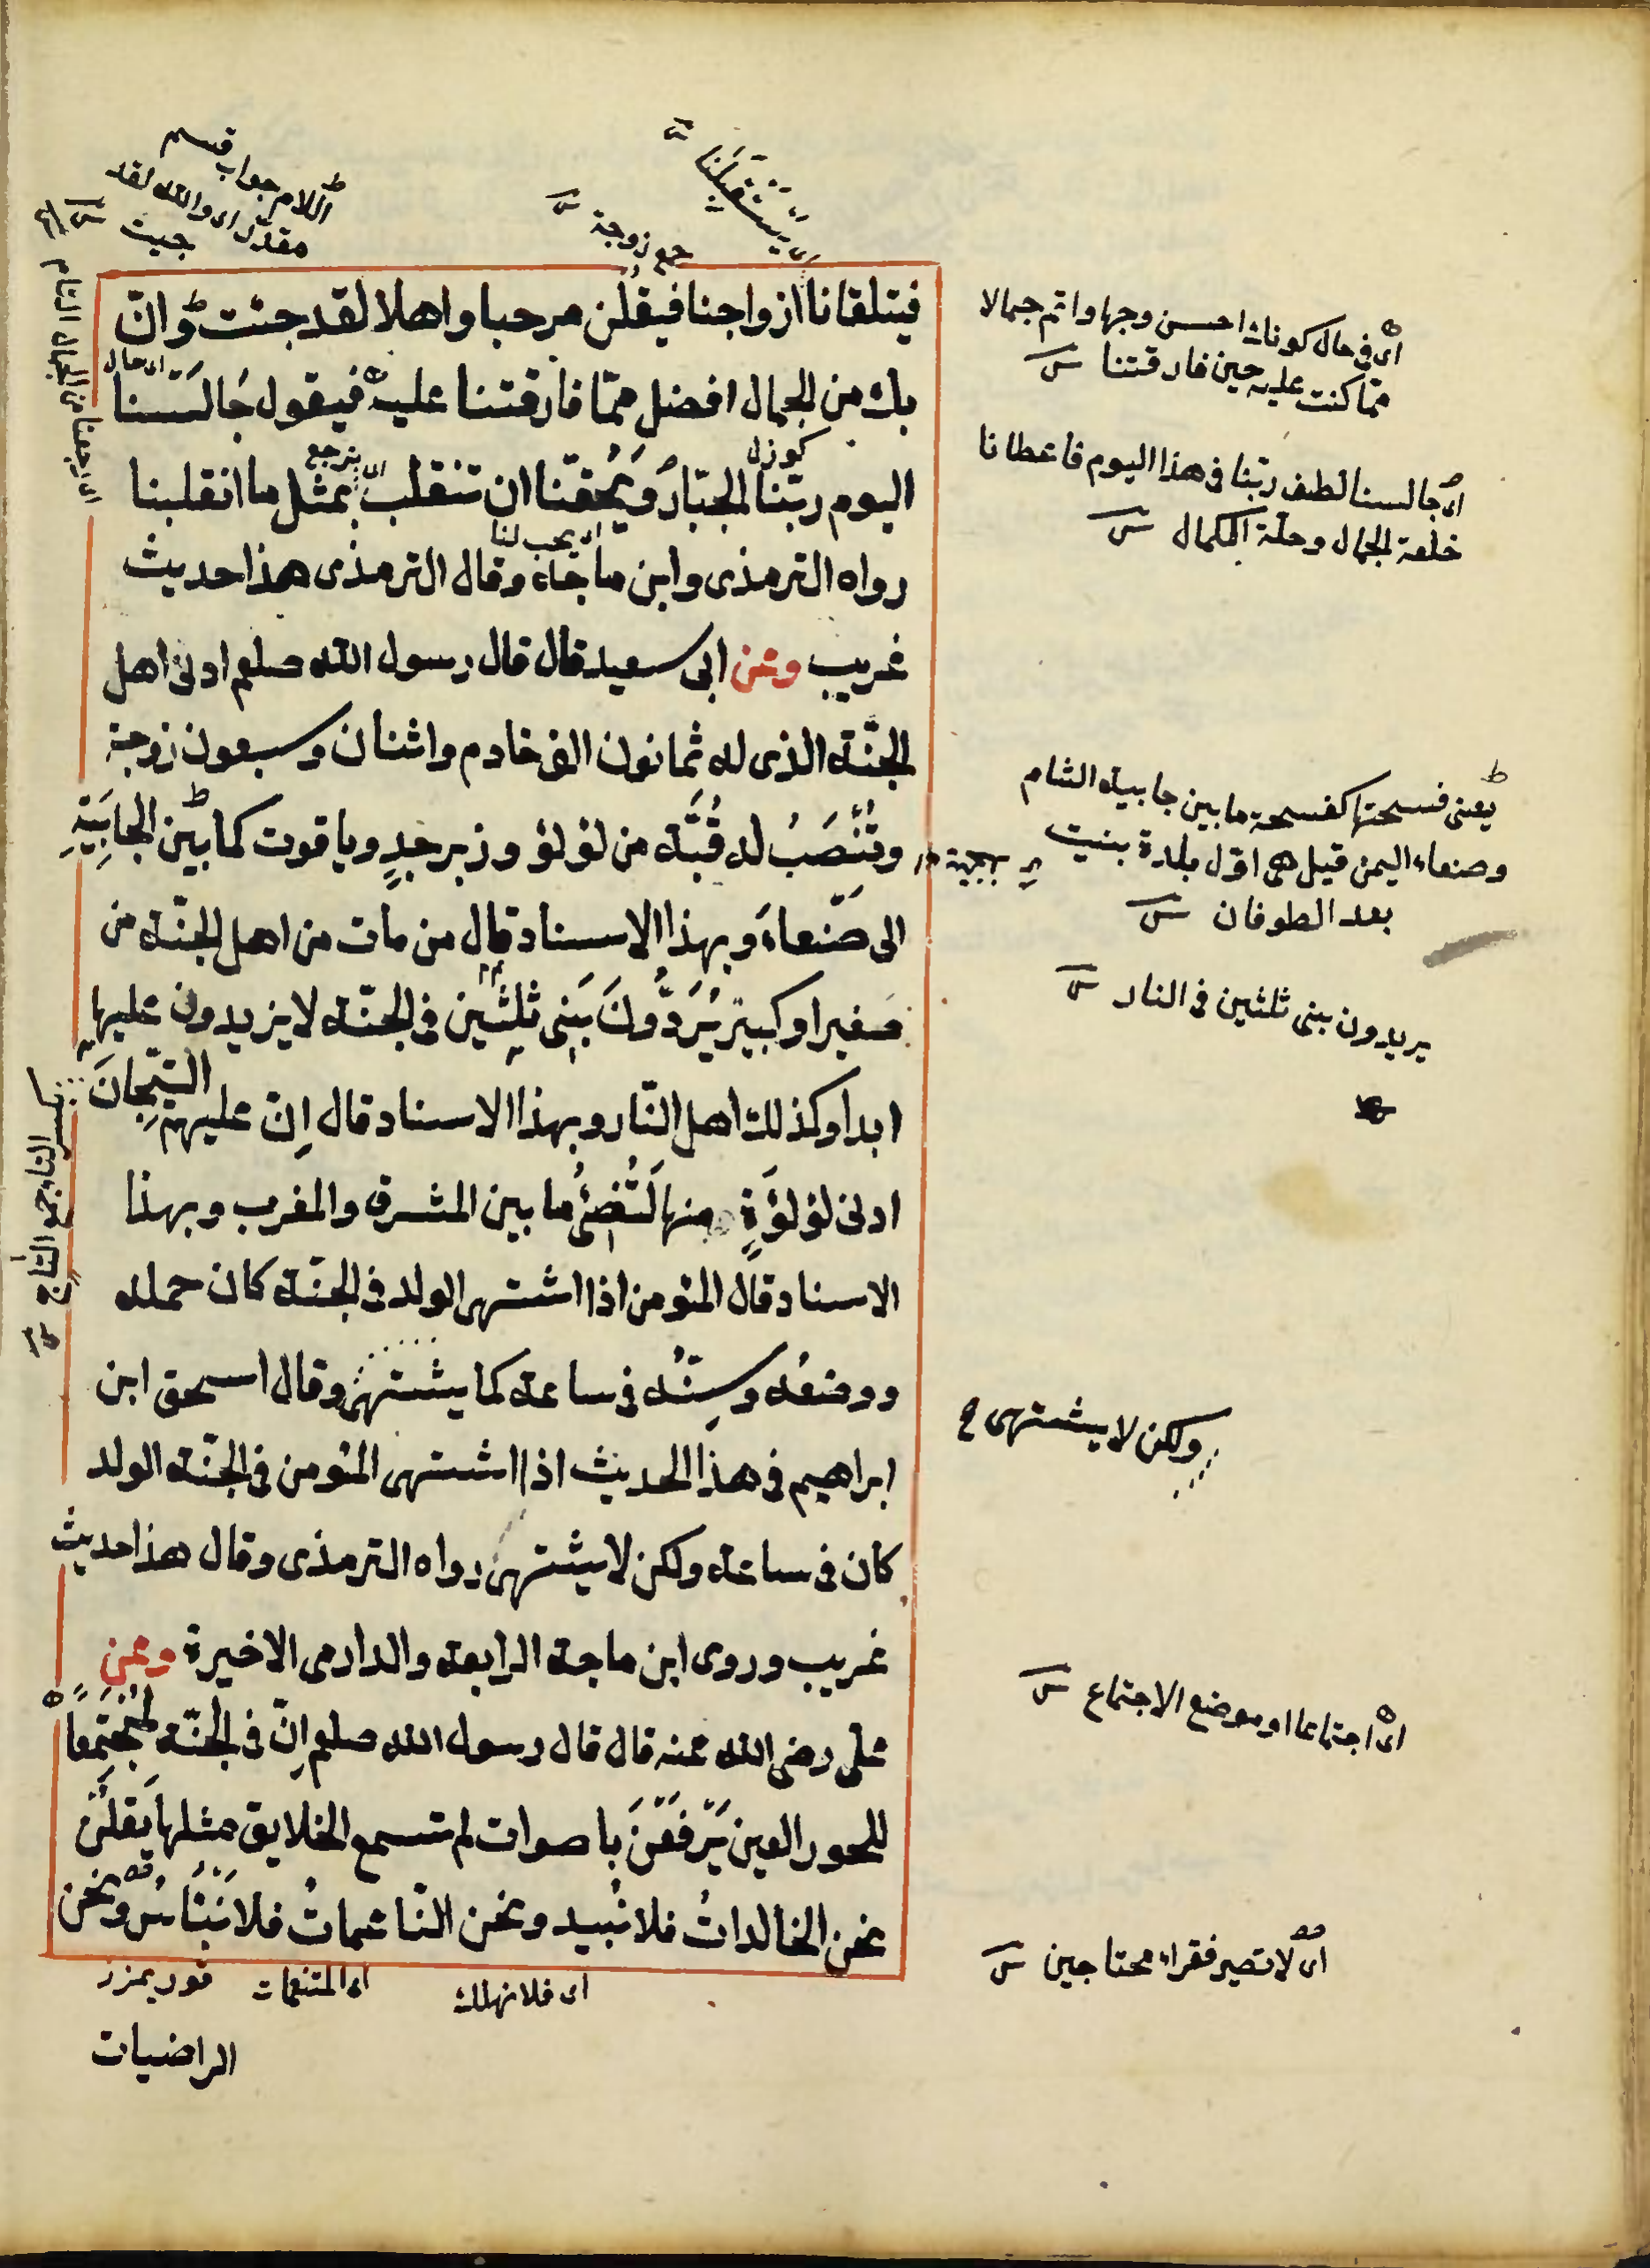 اللام جواب قسم
مقدر اى والله لقد
جيت
جمع زوجة
اى يستقبلنا
فيتلقانا ازواجنا فيقلن مرحبا واهلا لقد جئت وانّ
بك من الجمال افضل ممّا فارقتنا عليه فيقول جَالَسَنا
اليوم ربّنا الجبّارُ وَيُحقّنا ان ننقلب بمثل ما انقلبنا
رواه الترمذى وابن ماجة وقال الترمذى هذا حديث
غريب وعن ابى سعيد قال قال رسول الله صلعم ادنى اهل
الجنّة الذى له ثمانون الف خادم واثنان وسبعون زوجة
وتُنْصَبُ له قُبَّة من لؤلؤ وزبرجدٍ وياقوت كما بين الجابِيَةِ
الى صَنعاءَ وبهذا الاسناد قال من مات من اهل الجنّة من
صغير او كبير يُرَدُّونَ بَنِى ثلثين فى الجنّة لا يزيدون عليها
ابدا وكذلك اهل النّار وبهذا الاسناد قال اِنّ عليهم التِّيجانَ
ادنى لؤلؤةٍ منها لَتُضئُ ما بين المشرق والمغرب وبهذا
الاسناد قال المؤمن اذا اشتهى الولد فى الجنّة كان حمله
ووضعُه وسِنُّه فى ساعة كما يشتهى وقال اسحق ابن
ابراهيم فى هذا الحديث اذا اشتهى المؤمن فى الجنّة الولد
كان فى ساعة ولكن لا يشتهى رواه الترمذى وقال هذا حديث
غريب وروى ابن ماجة الرابعة والدارمى الاخيرة وعن
على رضى الله عنه قال قال رسول الله صلعم اِنّ فى الجنّة لمُجْتَمَعاً
للحور العين يَرفَعْنَ باصوات لم تسمع الخلايق مثلها يَقلْنَ
نحن الخالداتُ فلا نَبيد ونحن النّاعماتُ فلا نَبْأسُ ونحن
اى فلا نهلك
اى المتنعمات
الراضيات
اى يرجع
اى يجب لنا
اى فى حال كونك احسن وجها واتم جمالا
ممّا كنت عليه حين فارقتنا
اى جالسنا لطف ربّنا فى هذا اليوم فاعطانا
خلعة الجمال وحلّة الكمال
يعنى فسحتها كفسحة ما بين جابية الشام
وصنعاء اليمن قيل هى اوّل بلدة بنيت
بعد الطوفان
يريدون بنى ثلثين فى النار
بكسر التاء جمع التاج
ولكن لا يشتهى
اى اجتماعا او موضع الاجتماع
اى لا نصير فقراء محتاجين